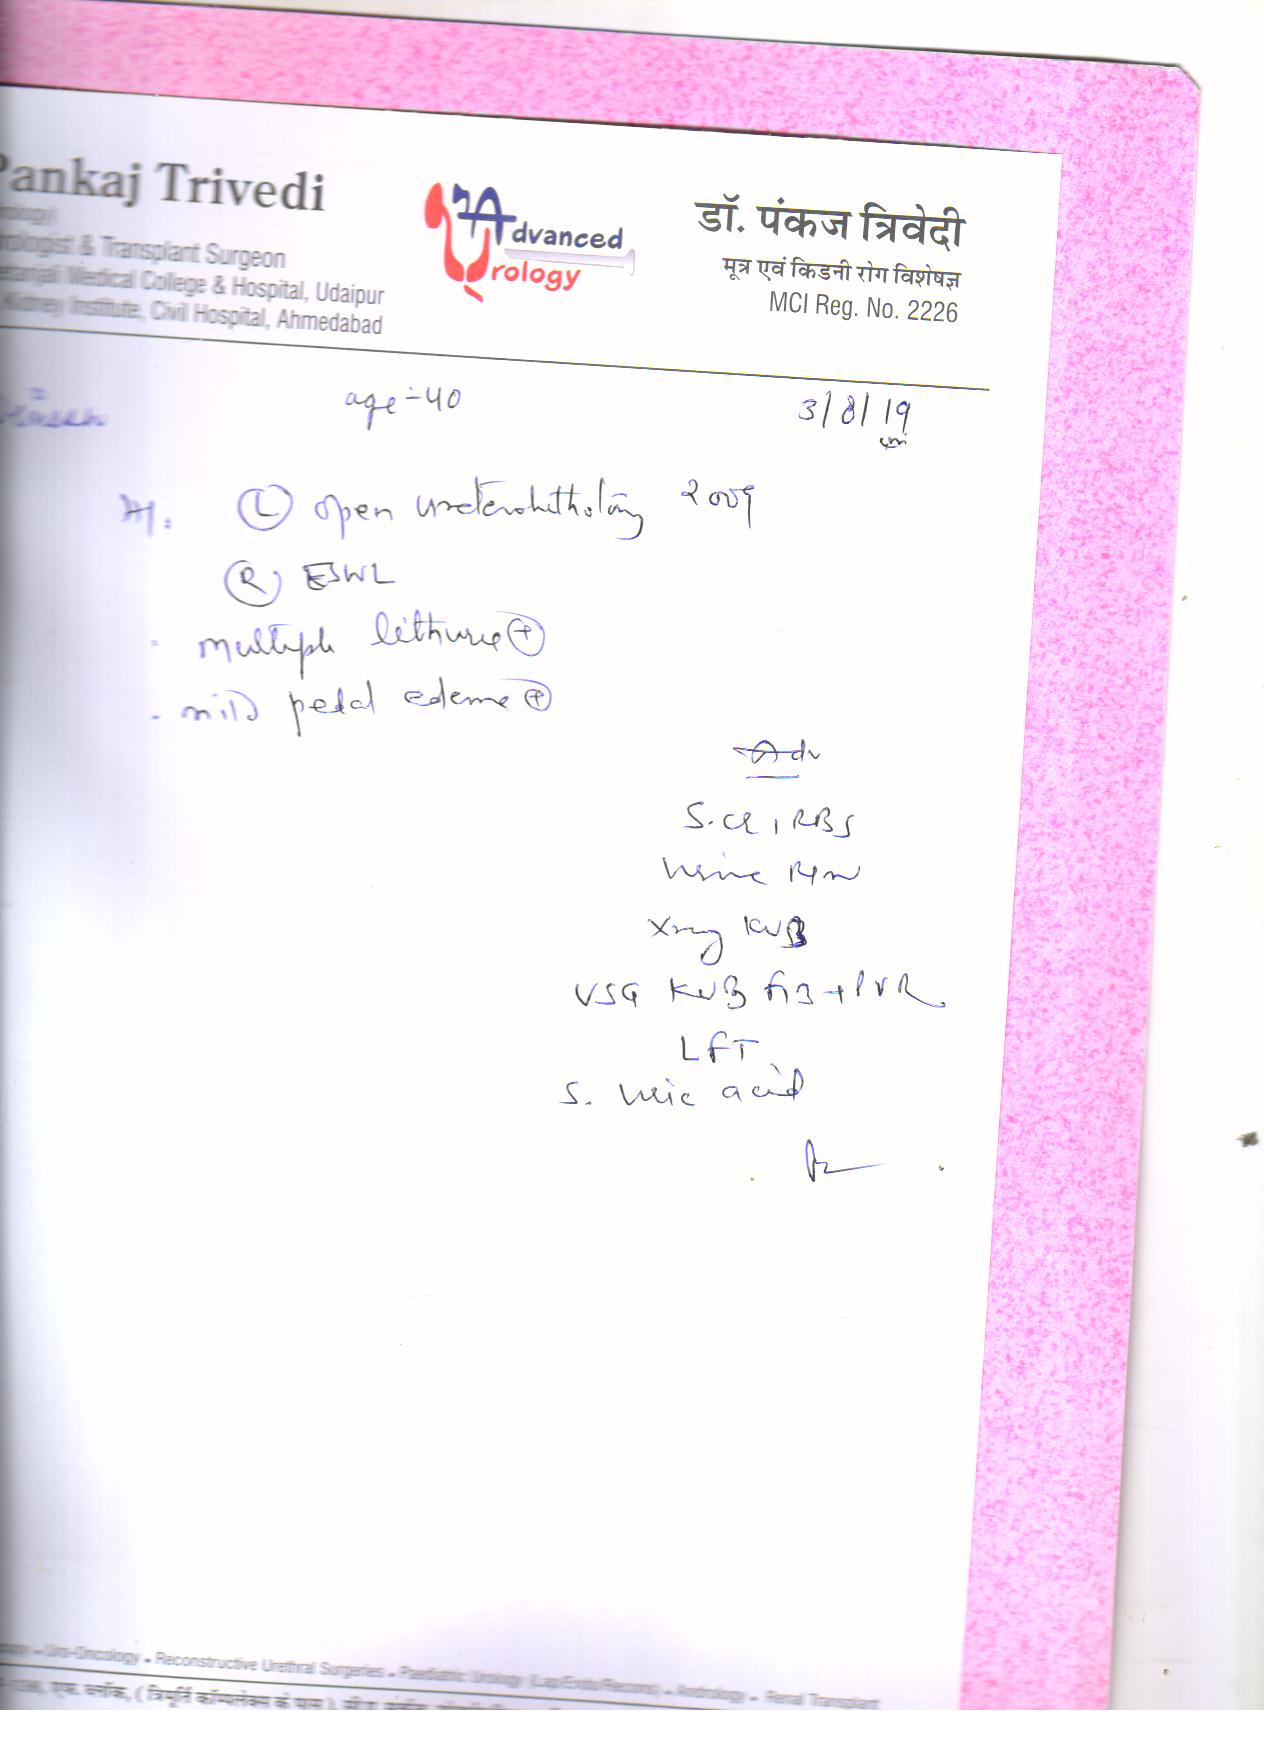 Pankaj Trivedi
Urologist & Transplant Surgeon
Geetanjali Medical College & Hospital, Udaipur
Kidney Institute, Civil Hospital, Ahmedabad
Advanced
Urology
डॉ. पंकज त्रिवेदी
मूत्र एवं किडनी रोग विशेषज्ञ
MCI Reg. No. 2226
age - 40
3/8/19
H/o (L) open ureterolithotomy 2009
(R) ESWL
- multiple lithuria (+)
- mild pedal edema (+)
Adv
S.Cr, RBS
Urine R/M
Xray KUB
USG KUB + PVR
LFT
S. Uric acid
Uro-Oncology • Reconstructive Urethral Surgeries • Paediatric Urology (Lap/Endo/Recons) • Andrology • Renal Transplant
एफ. ब्लॉक, ( त्रिमूर्ति कॉम्पलेक्स के पास )